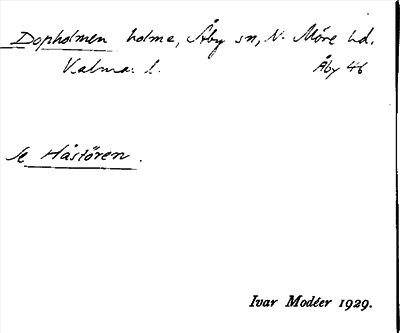 Dopholmen holme, Åby sn, N. Möre hd.
Kalmar l. Åby 46
se Håstören.
Ivar Modéer 1929.